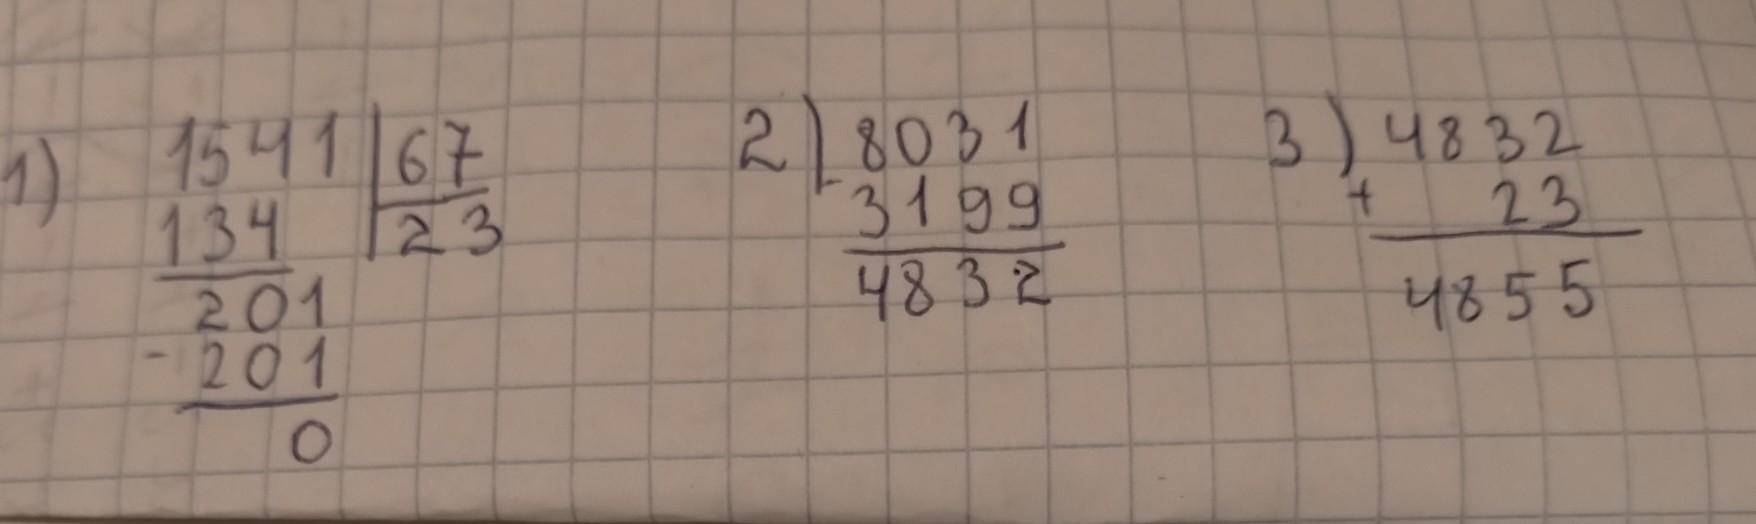 1) 1541 | 67
134 | 23
201
- 201
0
2) 8031
- 3199
4832
3) 4832
+ 23
4855